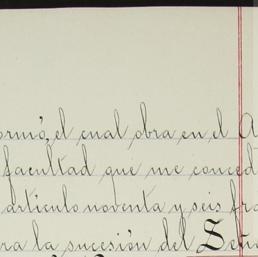 ormó, el cual obra en el A
facultad que me conced
artículo noventa y seis fra
ra la sucesión del Seño